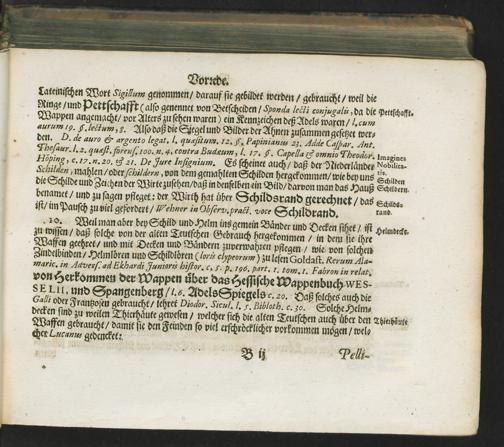 Vorrede.
Lateinischen Wort Sigillum genommen / darauf sie gebildet werden / gebraucht / weil die
Ringe / und Pettschafft (also genennet von Betscheiden / Sponda lecti conjugalis, da die
Pettschafft.
Wappen angemacht / vor Alters zu sehen waren) ein Kennzeichen deß Adels waren / l. cum
aurum 19. §. lectum, 8. Also daß die Siegel und Bilder der Ahnen zusammen gesetzt wer-
den. D. de auro & argento legat. l. quæsitum. 12. §. Papinianus 23. Adde Caspar. Ant.
Thesaur. l. 2. quæst. forens. 100. n. 4. contra Budæum, l. 17. §. Capella & omnio Theodor.
Höping, c. 17. n. 20. & 21. De Jure Insignium. Es scheinet auch / daß der Niederländer
Imagines
Nobilita-
tis.
Schilden, mahlen / oder schildern, von dem gemahlten Schilden hergekommen / wie bey uns
Schilden
Schildern.
die Schilde und Zeichen der Wirte zusehen / daß in denselben ein Bild / darvon man das Hauß
benamet / und zu sagen pfleget: der Wirth hat über Schildsrand gerechnet / das
Schilds-
rand.
ist / im Pausch zu viel gefordert / Wehner in Observ. pract. voce Schildrand.
10. Weil man aber bey Schild und Helm ins gemein Bänder und Decken sihet / ist
Helmdecke.
zu wissen / daß solche von der alten Teutschen Gebrauch hergekommen / in dem sie ihre
Waffen geehret / und mit Decken und Bändern zuverwahren pflegen / wie von solchen
Zindelbinden / Helmlören und Schildlören (loris clypeorum) zu lesen Goldast. Rerum Ala-
manic. in Advers. ad Ekhardi Junioris histor. c. 5. p. 196. part. 1. tom. 1. Fabron in relat.
von Herkommen der Wappen über das Hessische Wappenbuch WES-
SELII, und Spangenberg / l. 6. Adels Spiegels c. 20. Daß solches auch die
Galli oder Frantzosen gebrauchet / lehret Diodor. Sicul. l. 5. Biblioth. c. 30. Solche Helm-
decken sind zu weilen Thierhäute gewesen / welcher sich die alten Teutschen auch über den
Thierhäute
Waffen gebrauchet / damit sie den Feinden so viel erschröcklicher vorkommen mögen / wel-
cher Lucanus gedencket:
B ij
Pelli-